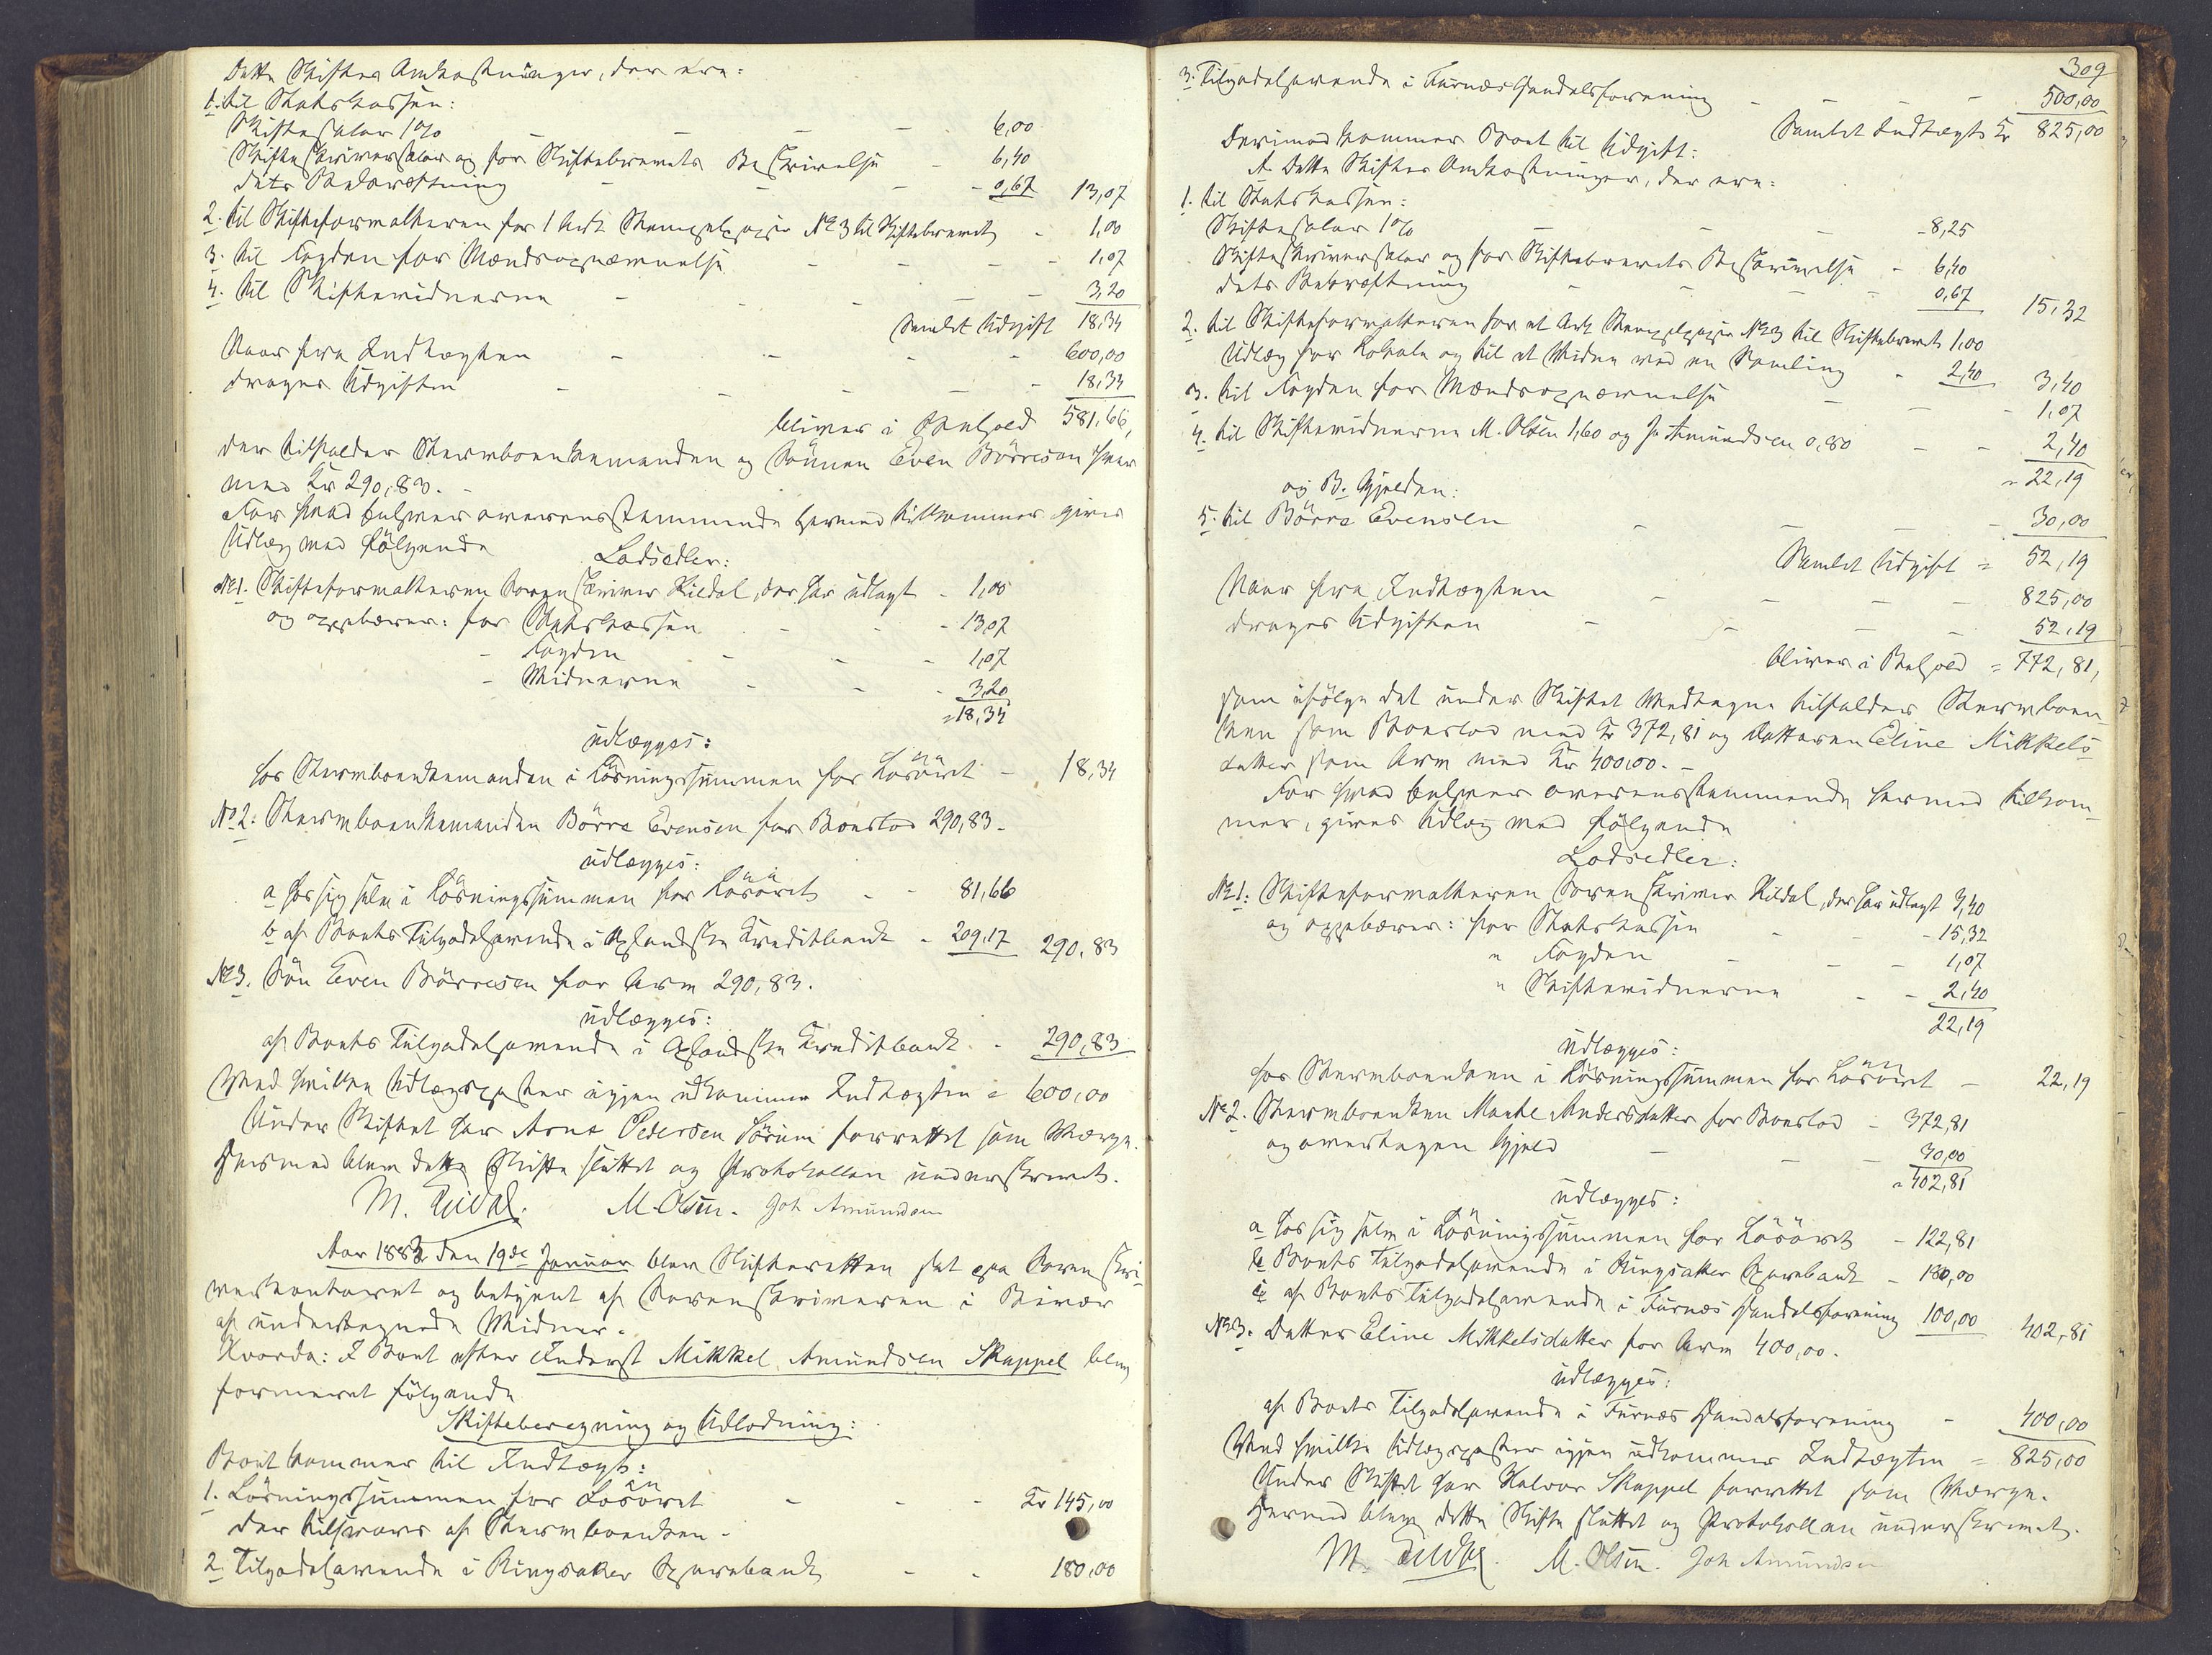 Dette Skiftes Omkostninger, der ere:
1. til Statskassen:
Skiftesalær 1% - - - 6,00
Skifteskriversalær og for Skiftebrevets Beskrivelse - 6,40
dets Bekræftning - - - 0,67 13,07
2. til Skifteforvalteren for 1 Ark Stempelpapir No 3 til Skiftebrevet - 1,00
3. til Fogden for Mændsopnævnelse - - - 1,07
4. til Skiftevidnerne - - - 3,20
Samlet Udgift 18,34
Naar fra Indtægten - - - 600,00
drages Udgiften - - - 18,34
bliver i Behold 581,66,
der tilfalder Stervboenkemanden og Sønnen Even Börresen hver
med Kr 290,83. -
For hvad Enhver overensstemmende hermed tilkommer gives
Udlæg med følgende
Lodsedler:
No 1. Skifteforvalteren Sorenskriver Kildal, der har udlagt - 1,00
og oppebærer: for Statskassen - - 13,07
- Fogden - - - 1,07
- Vidnerne - - - 3,20
= 18,34
udlægges:
hos Stervboenkemanden i Løsningssummen for Løsøret - 18,34
No 2: Stervboenkemanden Börre Evensen for Boeslod 290,83 -
udlægges:
a hos sig selv i Løsningssummen for Løsøret - - 81,66
b af Boets Tilgodehavende i Oplandske Kreditbank - 209,17 290,83
No 3. Søn Even Börresen for Arv 290,83.
udlægges:
af Boets Tilgodehavende i Oplandske Kreditbank - 290,83
Ved hvilke Udlægsposter igjen udkommer Indtægten = 600,00
Under Skiftet har Arne Pedersen Sörum forrettet som Værge.
Hermed blev dette Skifte sluttet og Protokollen underskrevet.
M. Kildal. M. Olsen. Joh Amundsen
Aar 1882 den 19de Januar blev Skifteretten sat paa Sorenskri-
verkontoret og betjent af Sorenskriveren i Overvær
af undertegnede Vidner.
Hvorda: I Boet efter Inderst Mikkel Amundsen Skappel blev
formeret følgende
Skifteberegning og Udlodning:
Boet kommer til Indtægt:
1. Løsningssummen for Løsøret - - - Kr 145,00
der tilsvares af Stervboenken -
2. Tilgodehavende i Ringsaker Sparebank - - 180,00
309
3. Tilgodehavende i Furnæs Handelsforening - - - 500,00
Samlet Indtægt Kr 825,00
Derimod kommer Boet til Udgift:
A. Dette Skiftes Omkostninger, der ere:
1. til Statskassen:
Skiftesalær 1% - - - 8,25
Skifteskriversalær og for Skiftebrevets Beskrivelse - 6,40
dets Bekræftning - - - 0,67 15,32
2. til Skifteforvalteren for et Ark Stempelpapir No 3 til Skiftebrevet 1,00
Udlæg for Lokale og til et Vidne ved en Samling - 2,40 3,40
3. til Fogden for Mændsopnævnelse - - - 1,07
4. til Skiftevidnerne M. Olsen 1,60 og J. Amundsen 0,80 - - 2,40
= 22,19
og B. Gjelden:
5. til Börre Evensen - - - 30,00
Samlet Udgift = 52,19
Naar fra Indtægten - - - 825,00
drages Udgiften - - - 52,19
bliver i Behold = 772,81,
som ifølge det under Skiftet Vedtagne tilfalder Stervboen-
ken som Boeslod med Kr 372,81 og Datteren Eline Mikkels-
datter som Arv med Kr 400,00. -
For hvad Enhver overensstemmende hermed tilkom-
mer, gives Udlæg med følgende
Lodsedler:
No 1: Skifteforvalteren Sorenskriver Kildal, der har udlagt 3,40
og oppebærer: for Statskassen - - 15,32
" Fogden - - - 1,07
" Skiftevidnerne - - 2,40
22,19
udlægges:
hos Stervboenken i Løsningssummen for Løsøret - 22,19
No 2. Stervboenken Marthe Andersdatter for Boeslod - 372,81
og overtagen Gjeld - - - 30,00
= 402,81
udlægges:
a hos sig selv i Løsningssummen for Løsøret - 122,81
b Boets Tilgodehavende i Ringsaker Sparebank - 180,00
c af Boets Tilgodehavende i Furnæs Handelsforening 100,00 402,81
No 3. Datter Eline Mikkelsdatter for Arv 400,00.
udlægges:
af Boets Tilgodehavende i Furnæs Handelsforening - 400,00
Ved hvilke Udlægsposter igjen udkommer Indtægten = 825,00
Under Skiftet har Halvor Skappel forrettet som Værge.
Hermed blev dette Skifte sluttet og Protokollen underskrevet.
M. Kildal. M. Olsen. Joh Amundsen